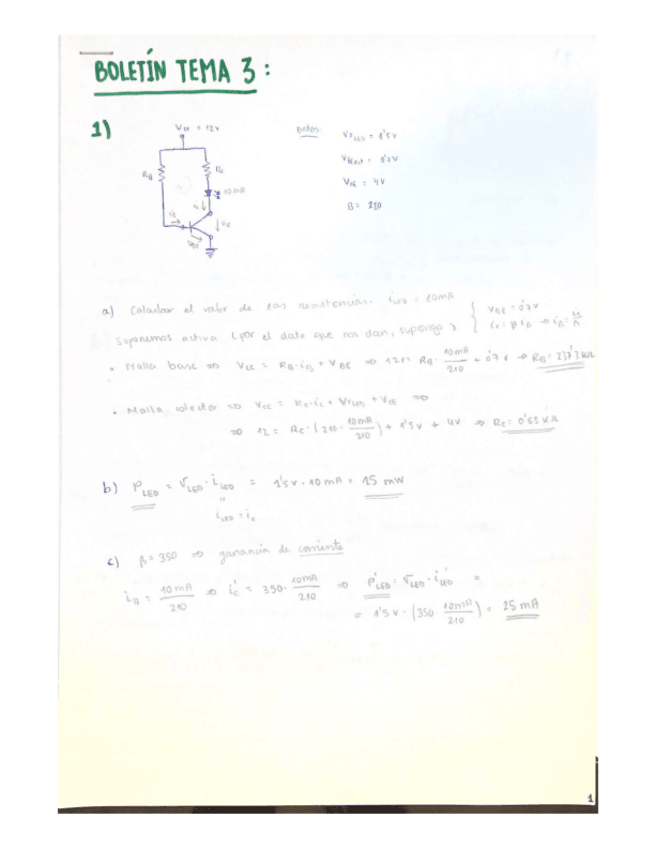 BOLETÍN TEMA 3:
1)
Vcc = 12V
Datos:
VF LED = 1'5V
VBEact = 0'7V
VCE = 4V
β = 210
RB
RC
10mA
VCE
VBE
a) Calcular el valor de las resistencias. iLED = 10mA
Suponemos activa (por el dato que nos dan, supongo) { VBE = 0'7V
• Malla base ⇒ VCC = RB·iB + VBE ⇒ 12 = RB· 10mA/210 + 0'7V → RB = 237'3 KΩ
• Malla colector ⇒ VCC = RC·iC + VFLED + VCE ⇒
⇒ 12 = RC·(210· 10mA/210) + 1'5V + 4V ⇒ RC = 0'65 KΩ
b) PLED = VLED·iLED = 1'5V·10mA = 15 mW
iLED = ic
c) β = 350 ⇒ ganancia de corriente
iB = 10mA/210 ⇒ i'C = 350· 10mA/210 ⇒ P'LED = VLED·i'LED =
= 1'5V·(350· 10mA/210) = 25 mA
1